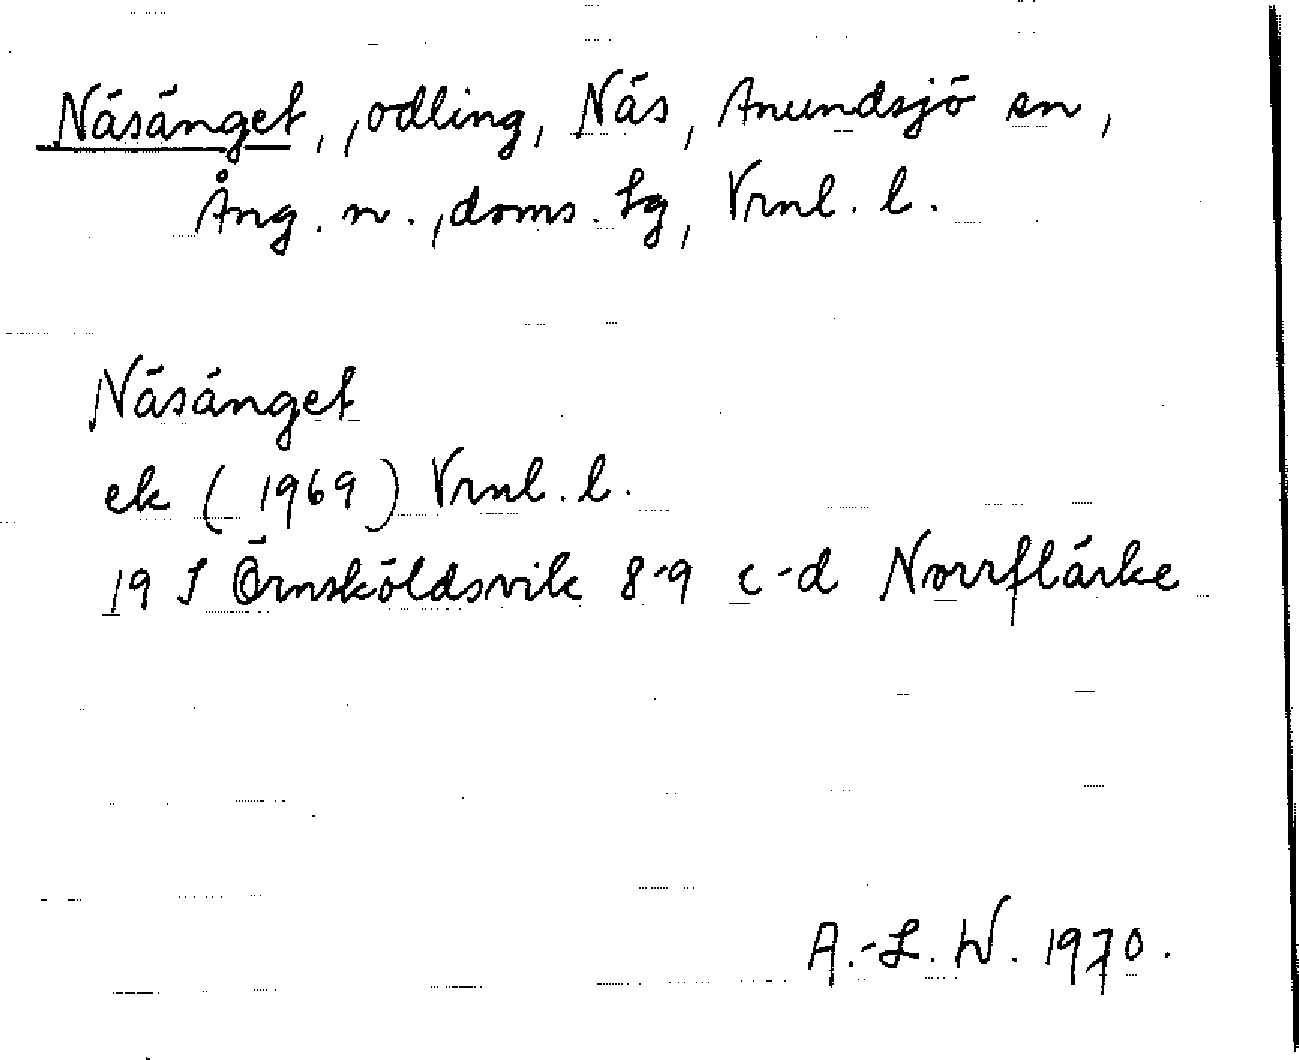 Näsänget, , odling, Näs, Anundsjö sn,
Ång. n., doms. Lg, Vrnl. l.
Näsänget
ek (1969) Vrnl. l.
19 J Örnsköldsvik 8-9 c-d Norrflärke
A.-L. W. 1970.